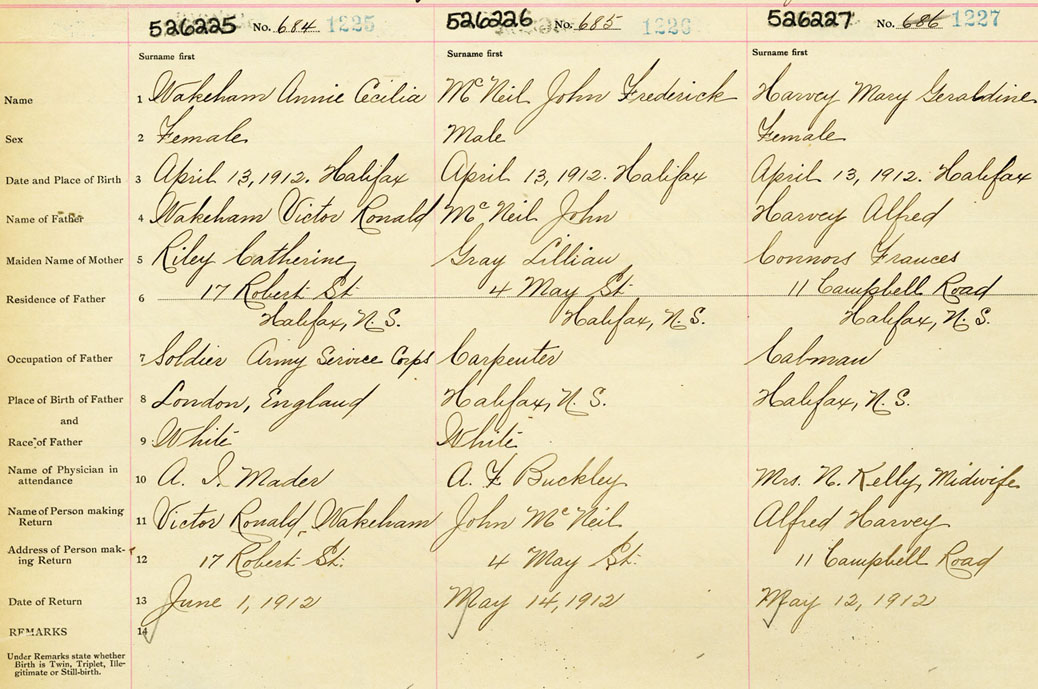 526225 No. 684 1225
526226 No. 685 1226
526227 No. 686 1227
Surname first Surname first Surname first
Name 1 Wakeham Annie Cecilia McNeil John Frederick Harvey Mary Geraldine
Sex 2 Female Male Female
Date and Place of Birth 3 April 13, 1912. Halifax April 13, 1912. Halifax April 13, 1912. Halifax
Name of Father 4 Wakeham Victor Ronald McNeil John Harvey Alfred
Maiden Name of Mother 5 Riley Catherine Gray Lillian Connors Frances
Residence of Father 6 17 Robert St 4 May St 11 Campbell Road
Halifax, N.S. Halifax, N.S. Halifax, N.S.
Occupation of Father 7 Soldier Army Service Corps Carpenter Cabman
Place of Birth of Father 8 London, England Halifax, N.S. Halifax, N.S.
and
Race of Father 9 White White
Name of Physician in
attendance 10 A. I. Mader A. F. Buckley Mrs. N. Kelly, Midwife
Name of Person making
Return 11 Victor Ronald, Wakeham John McNeil Alfred Harvey
Address of Person mak-
ing Return 12 17 Robert St. 4 May St. 11 Campbell Road
Date of Return 13 June 1, 1912 May 14, 1912 May 12, 1912
REMARKS 14
Under Remarks state whether
Birth is Twin, Triplet, Ille-
gitimate or Still-birth.